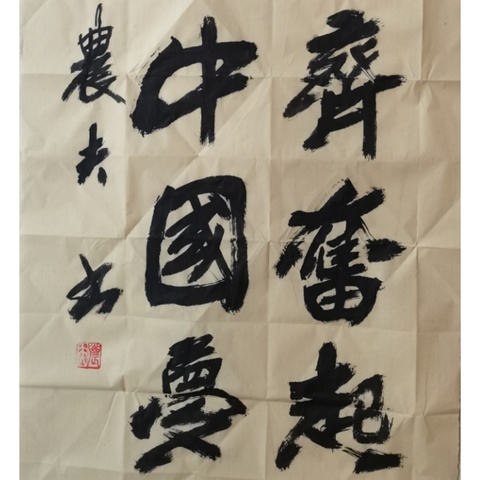 齊奮起
中國夢
農夫书